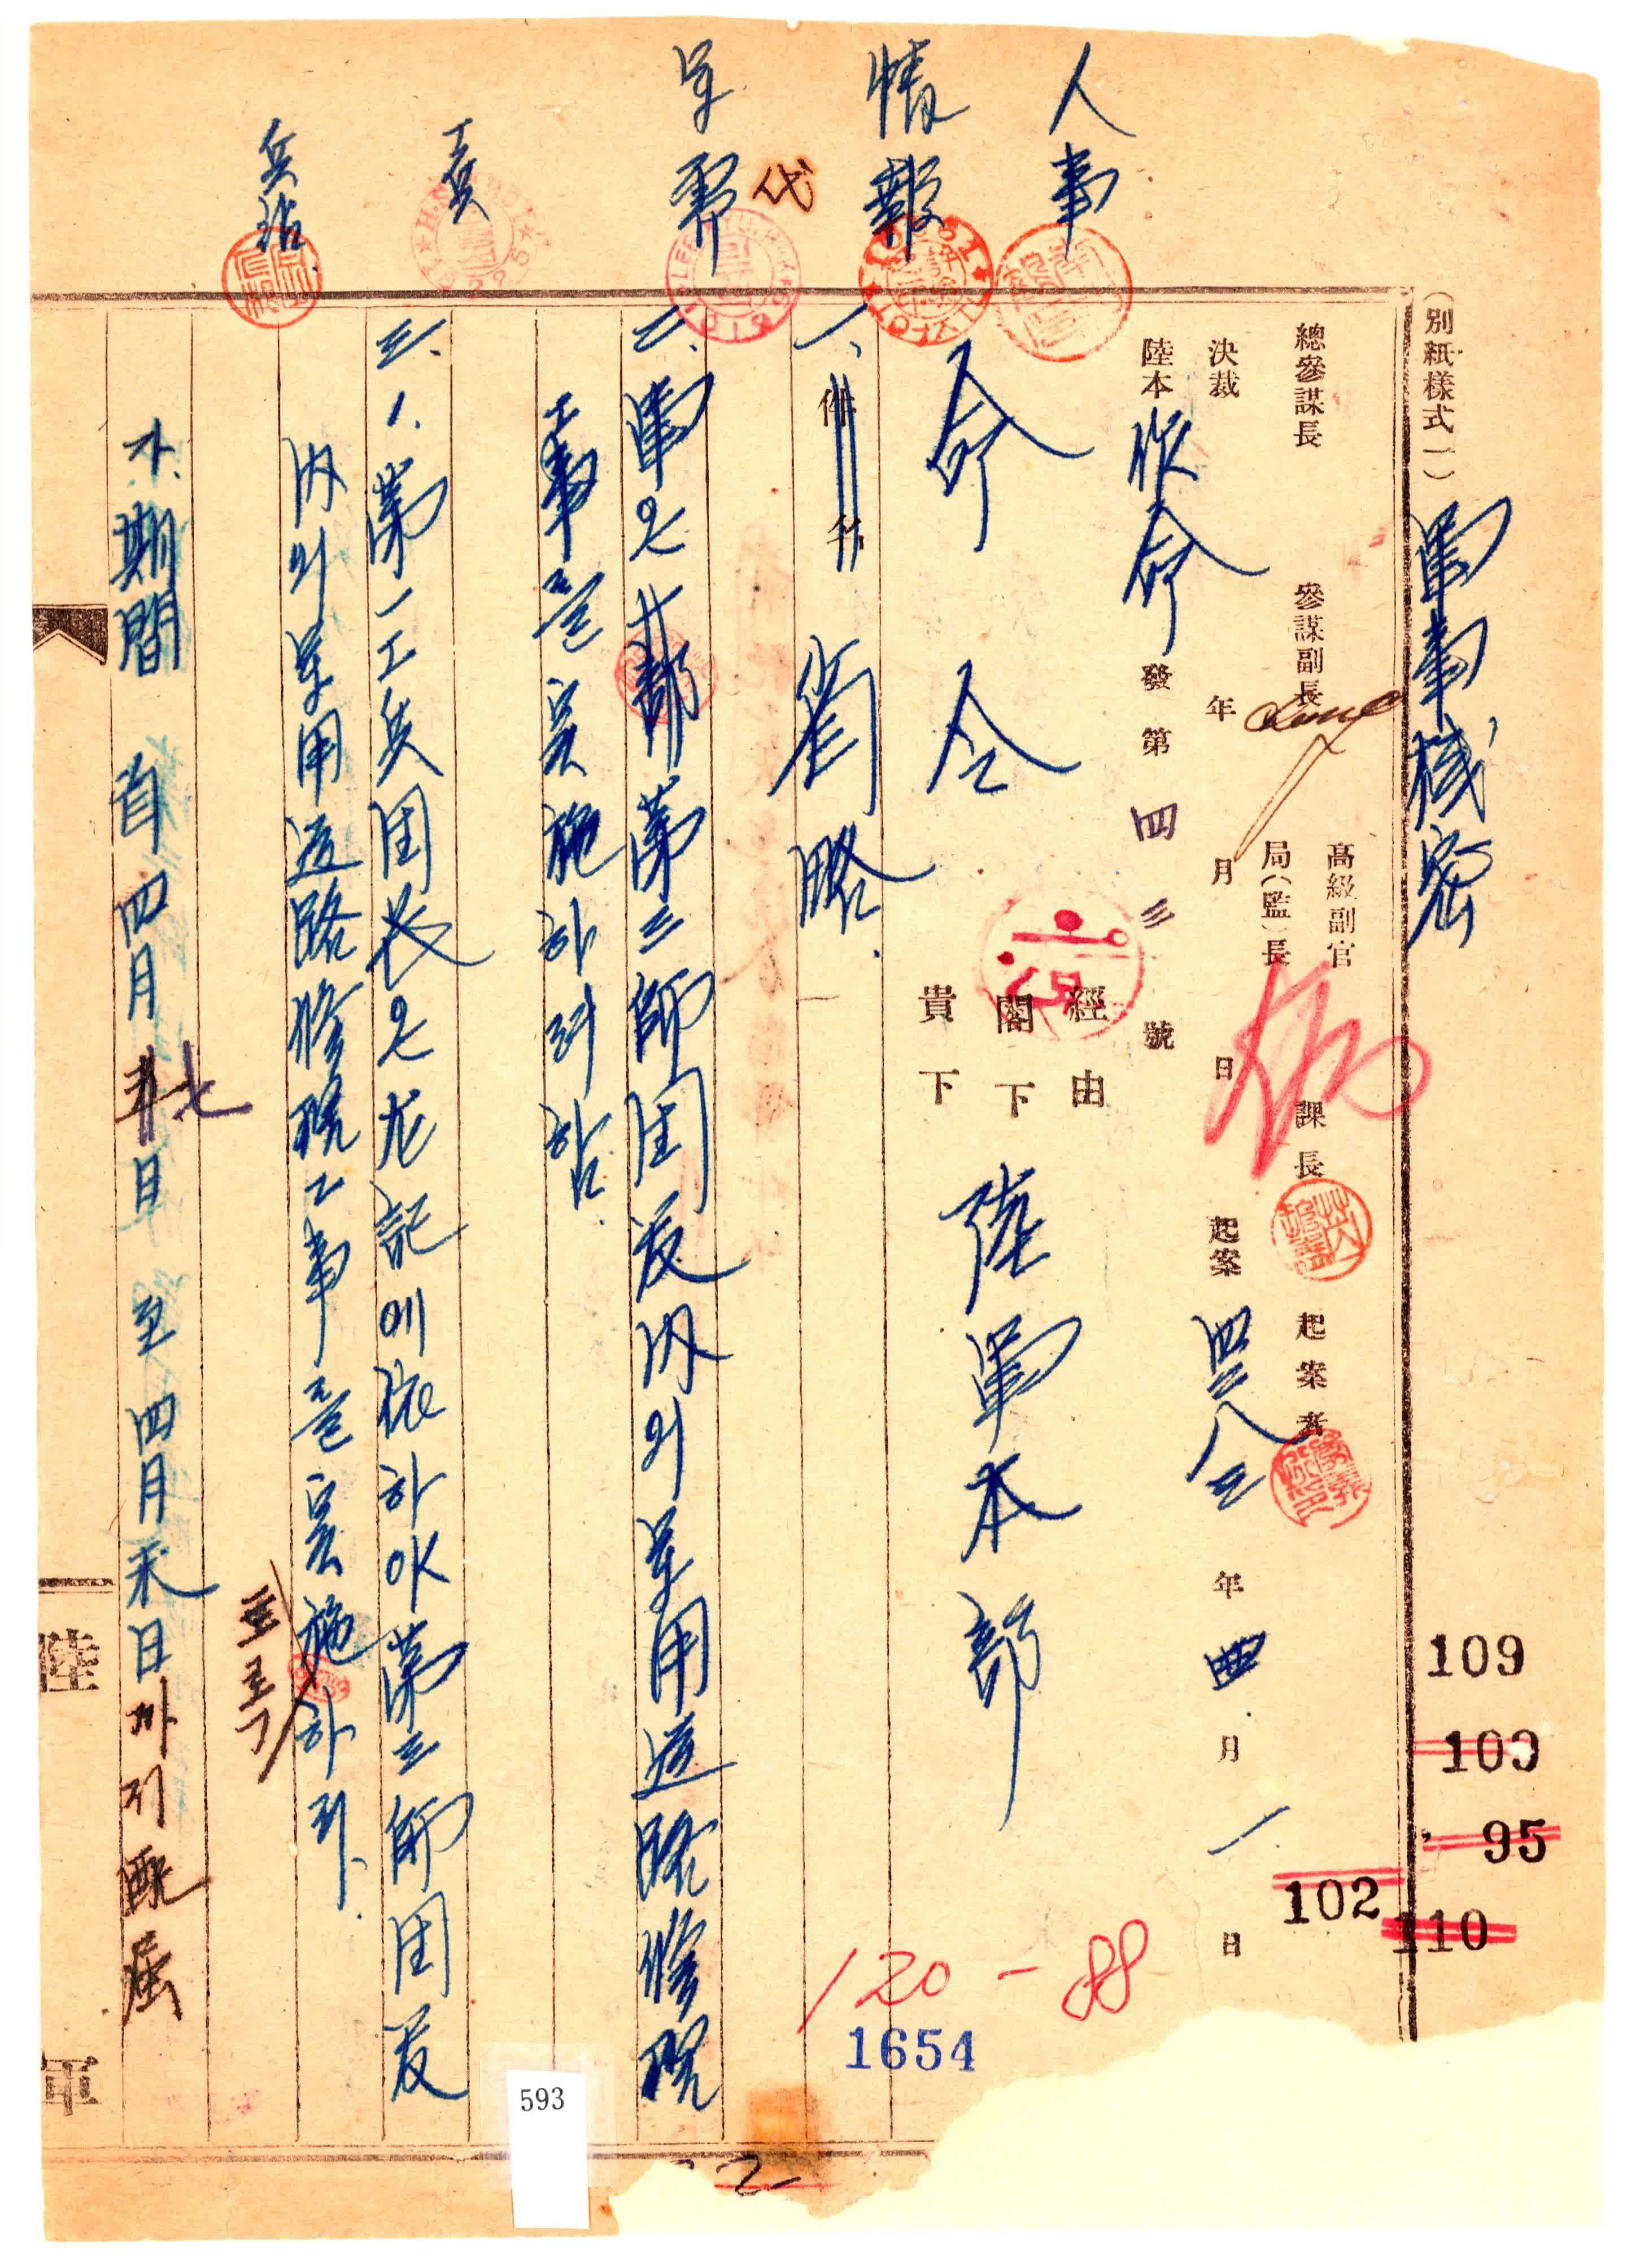 人事
情報
軍需
代
工兵
兵站
(別紙樣式一)
軍事機密
總參謀長 參謀副長 高級副官
局(監)長 課長 起案者
決裁 年 月 日 起案 四二八三年 四月 一日
陸本 作命 發第 四三 號
經由
閣下
貴下
命令 陸軍本部
一、省略.
件名
二、軍은 第三師団爰内의 軍用道路修理
工事를 실施하려함.
三、1. 第一工兵団長은 左記에 依하야 第三師団爰
内의 軍用道路修理工事를 실施하
도록
하라.
期間 自四月 七日 至四月末日까지 配屈
陸
軍
109
103
95
110
102
120-88
1654
593
2